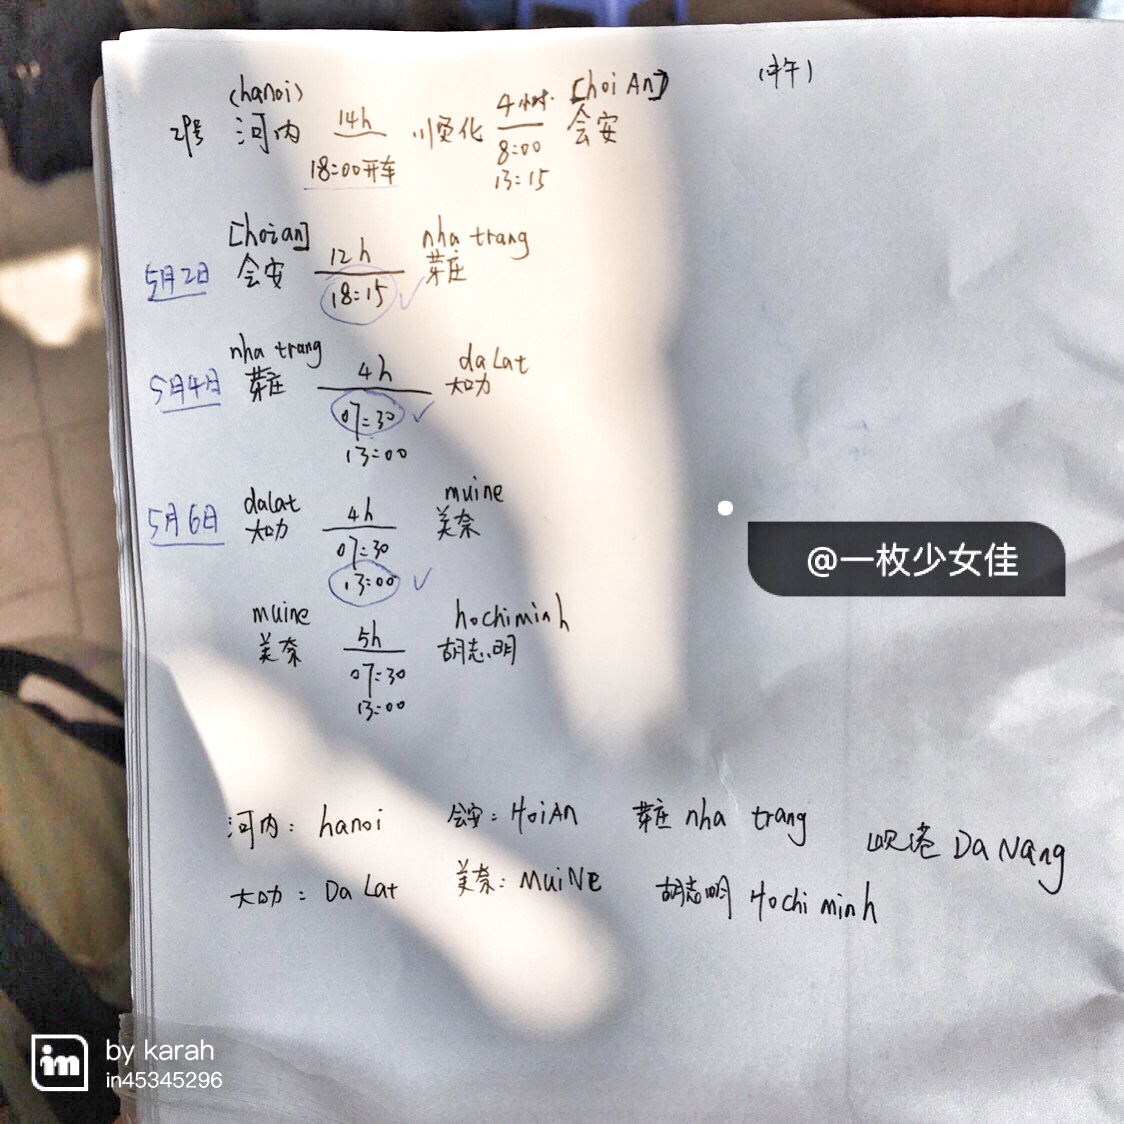 (hanoi) 14h 4小时 [hoi An] (中午)
29号 河内 18:00开车 顺化 8:00 会安
13:15
[hoian] 12h nha trang
5月2日 会安 18:15 芽庄
nha trang 4h da Lat
5月4日 芽庄 07:30 大叻
13:00
dalat 4h muine
5月6日 大叻 07:30 美奈
13:00
muine 5h hochiminh
美奈 07:30 胡志明
13:00
河内: hanoi 会安: HoiAn 芽庄 nha trang 岘港 Da Nang
大叻: Da Lat 美奈: Mui NE 胡志明 Hochi minh
@一枚少女佳
im by karah
in45345296